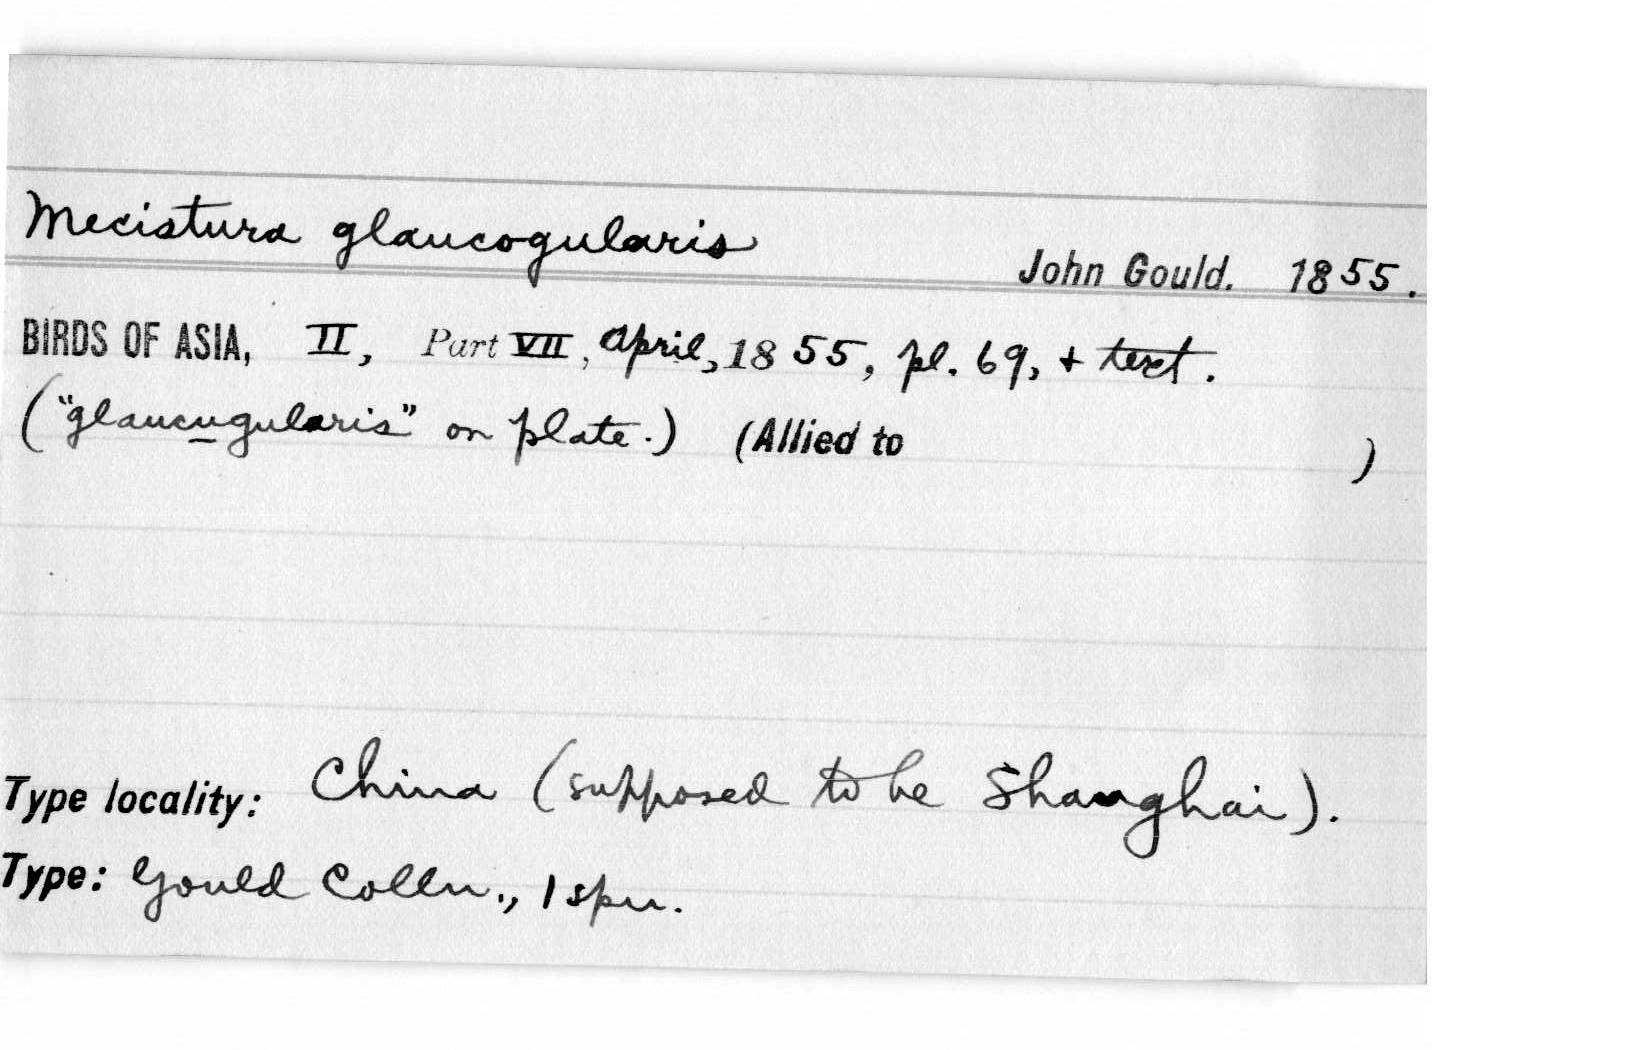 Mecistura glaucogularis
John Gould. 1855.
BIRDS OF ASIA, II, Part VII, April, 1855, pl. 69, + text.
("glaucugularis" on plate.) (Allied to )
Type locality: China (supposed to be Shanghai).
Type: Gould Colln., 1 spn.